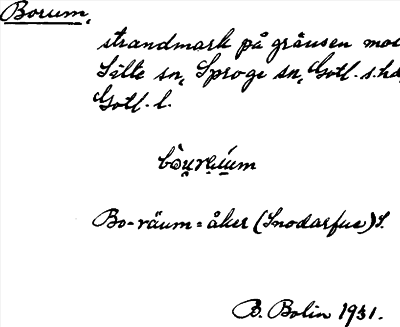 Borum,
strandmark på gränsen mo
Silte sn, Sproge sn, Gotl. s. hd,
Gotl. l.
Bo-räum = åker (Snodarfve) S.
B. Bolin 1931.